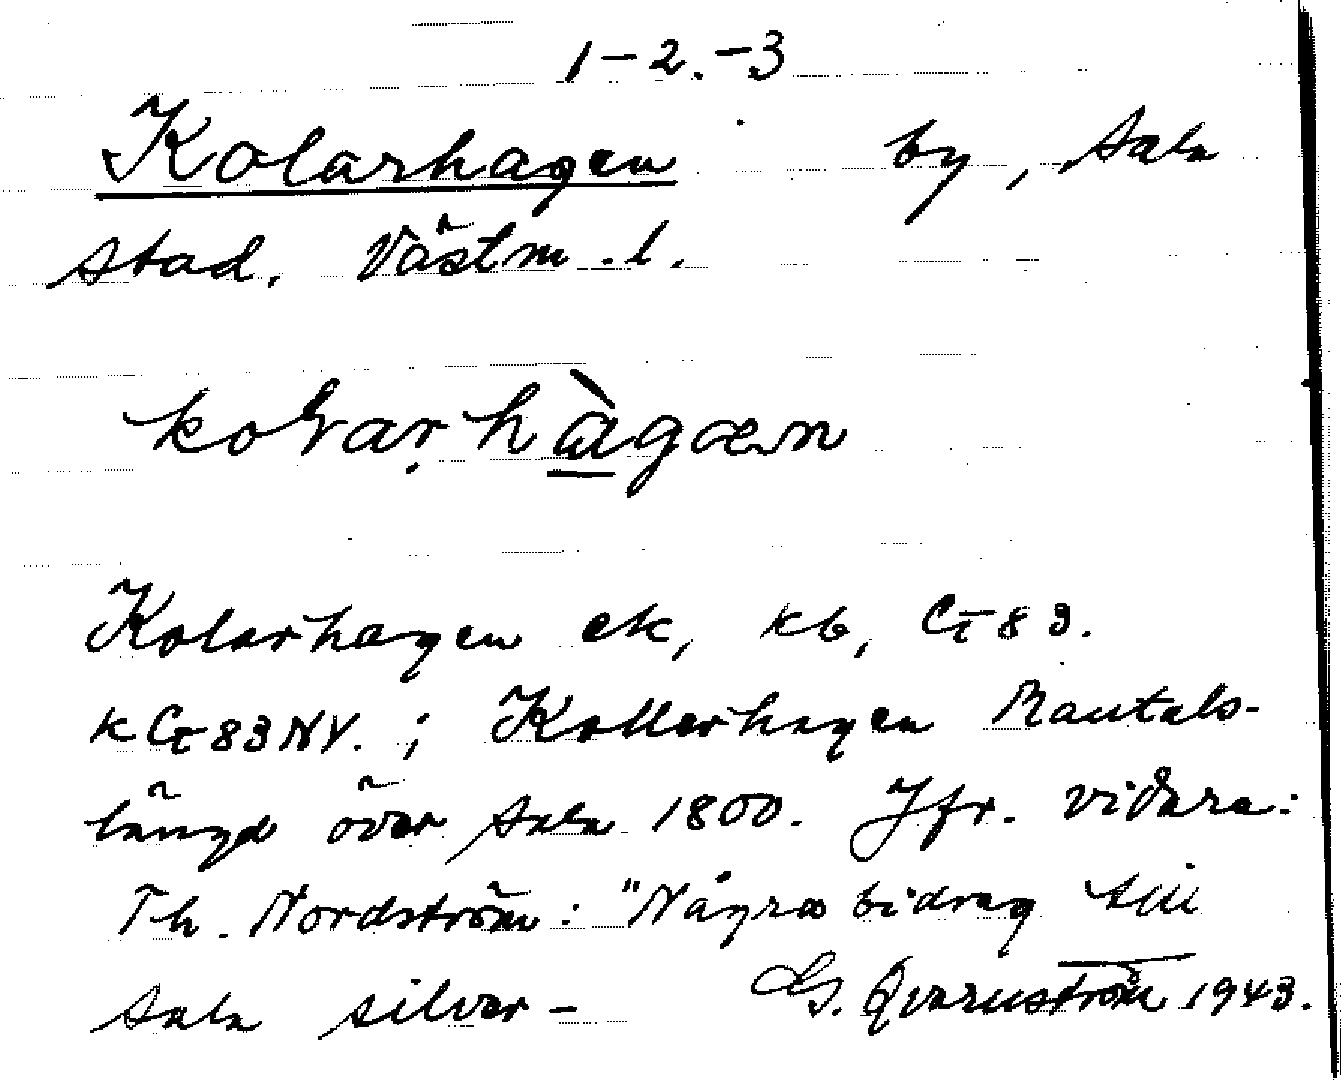 1-2.-3
Kolarhagen by, Sala
stad. Västm. l.
kolarhàgæn
Kolarhagen ek, kb, GI 83.
k GI 83 NV. ; Kollerhagen Mantals-
längd över Sala 1800. Jfr. vidare:
Th. Nordström: "Några bidrag till
Sala silver- G. Qvarnström 1943.